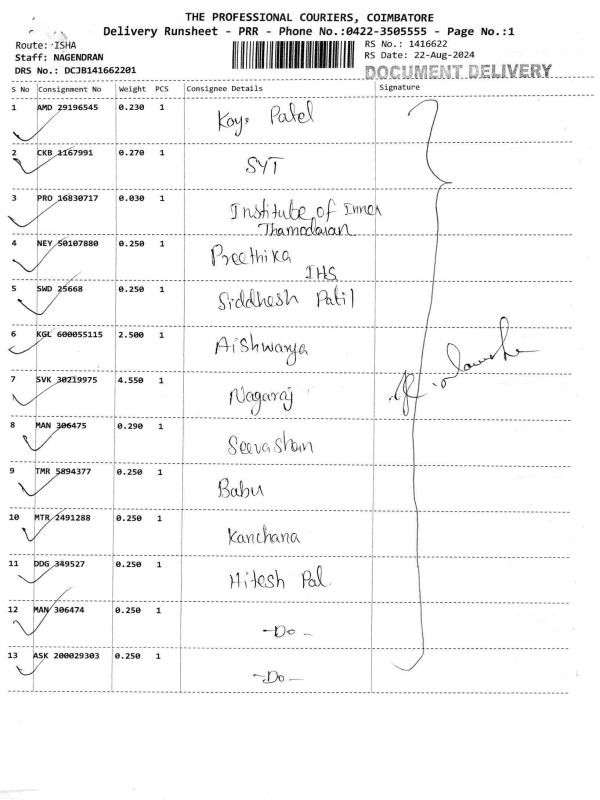 THE PROFESSIONAL COURIERS, COIMBATORE
Delivery Runsheet - PRR - Phone No.:0422-3505555 - Page No.:1
Route: ISHA
Staff: NAGENDRAN
DRS No.: DCJB141662201
RS No.: 1416622
RS Date: 22-Aug-2024
DOCUMENT DELIVERY
S No Consignment No Weight PCS Consignee Details Signature
1 AMD 29196545 0.230 1 Patel
2 CKB 1167991 0.270 1 SYT
3 PRO 16830717 0.030 1 Institute of Inner
Thamodaran
4 NEY 50107880 0.250 1 Preethika
IHS
5 SWD 25668 0.250 1 Siddhesh Patil
6 KGL 600055115 2.500 1 Aishwarya
7 SVK 30219975 4.550 1 Nagaraj
8 MAN 306475 0.290 1 Seevashan
9 TMR 5894377 0.250 1 Babu
10 MTR 2491288 0.250 1 Kanchana
11 DDG 349527 0.250 1 Hitesh Pal.
12 MAN 306474 0.250 1 -Do-
13 ASK 200029303 0.250 1 -Do-